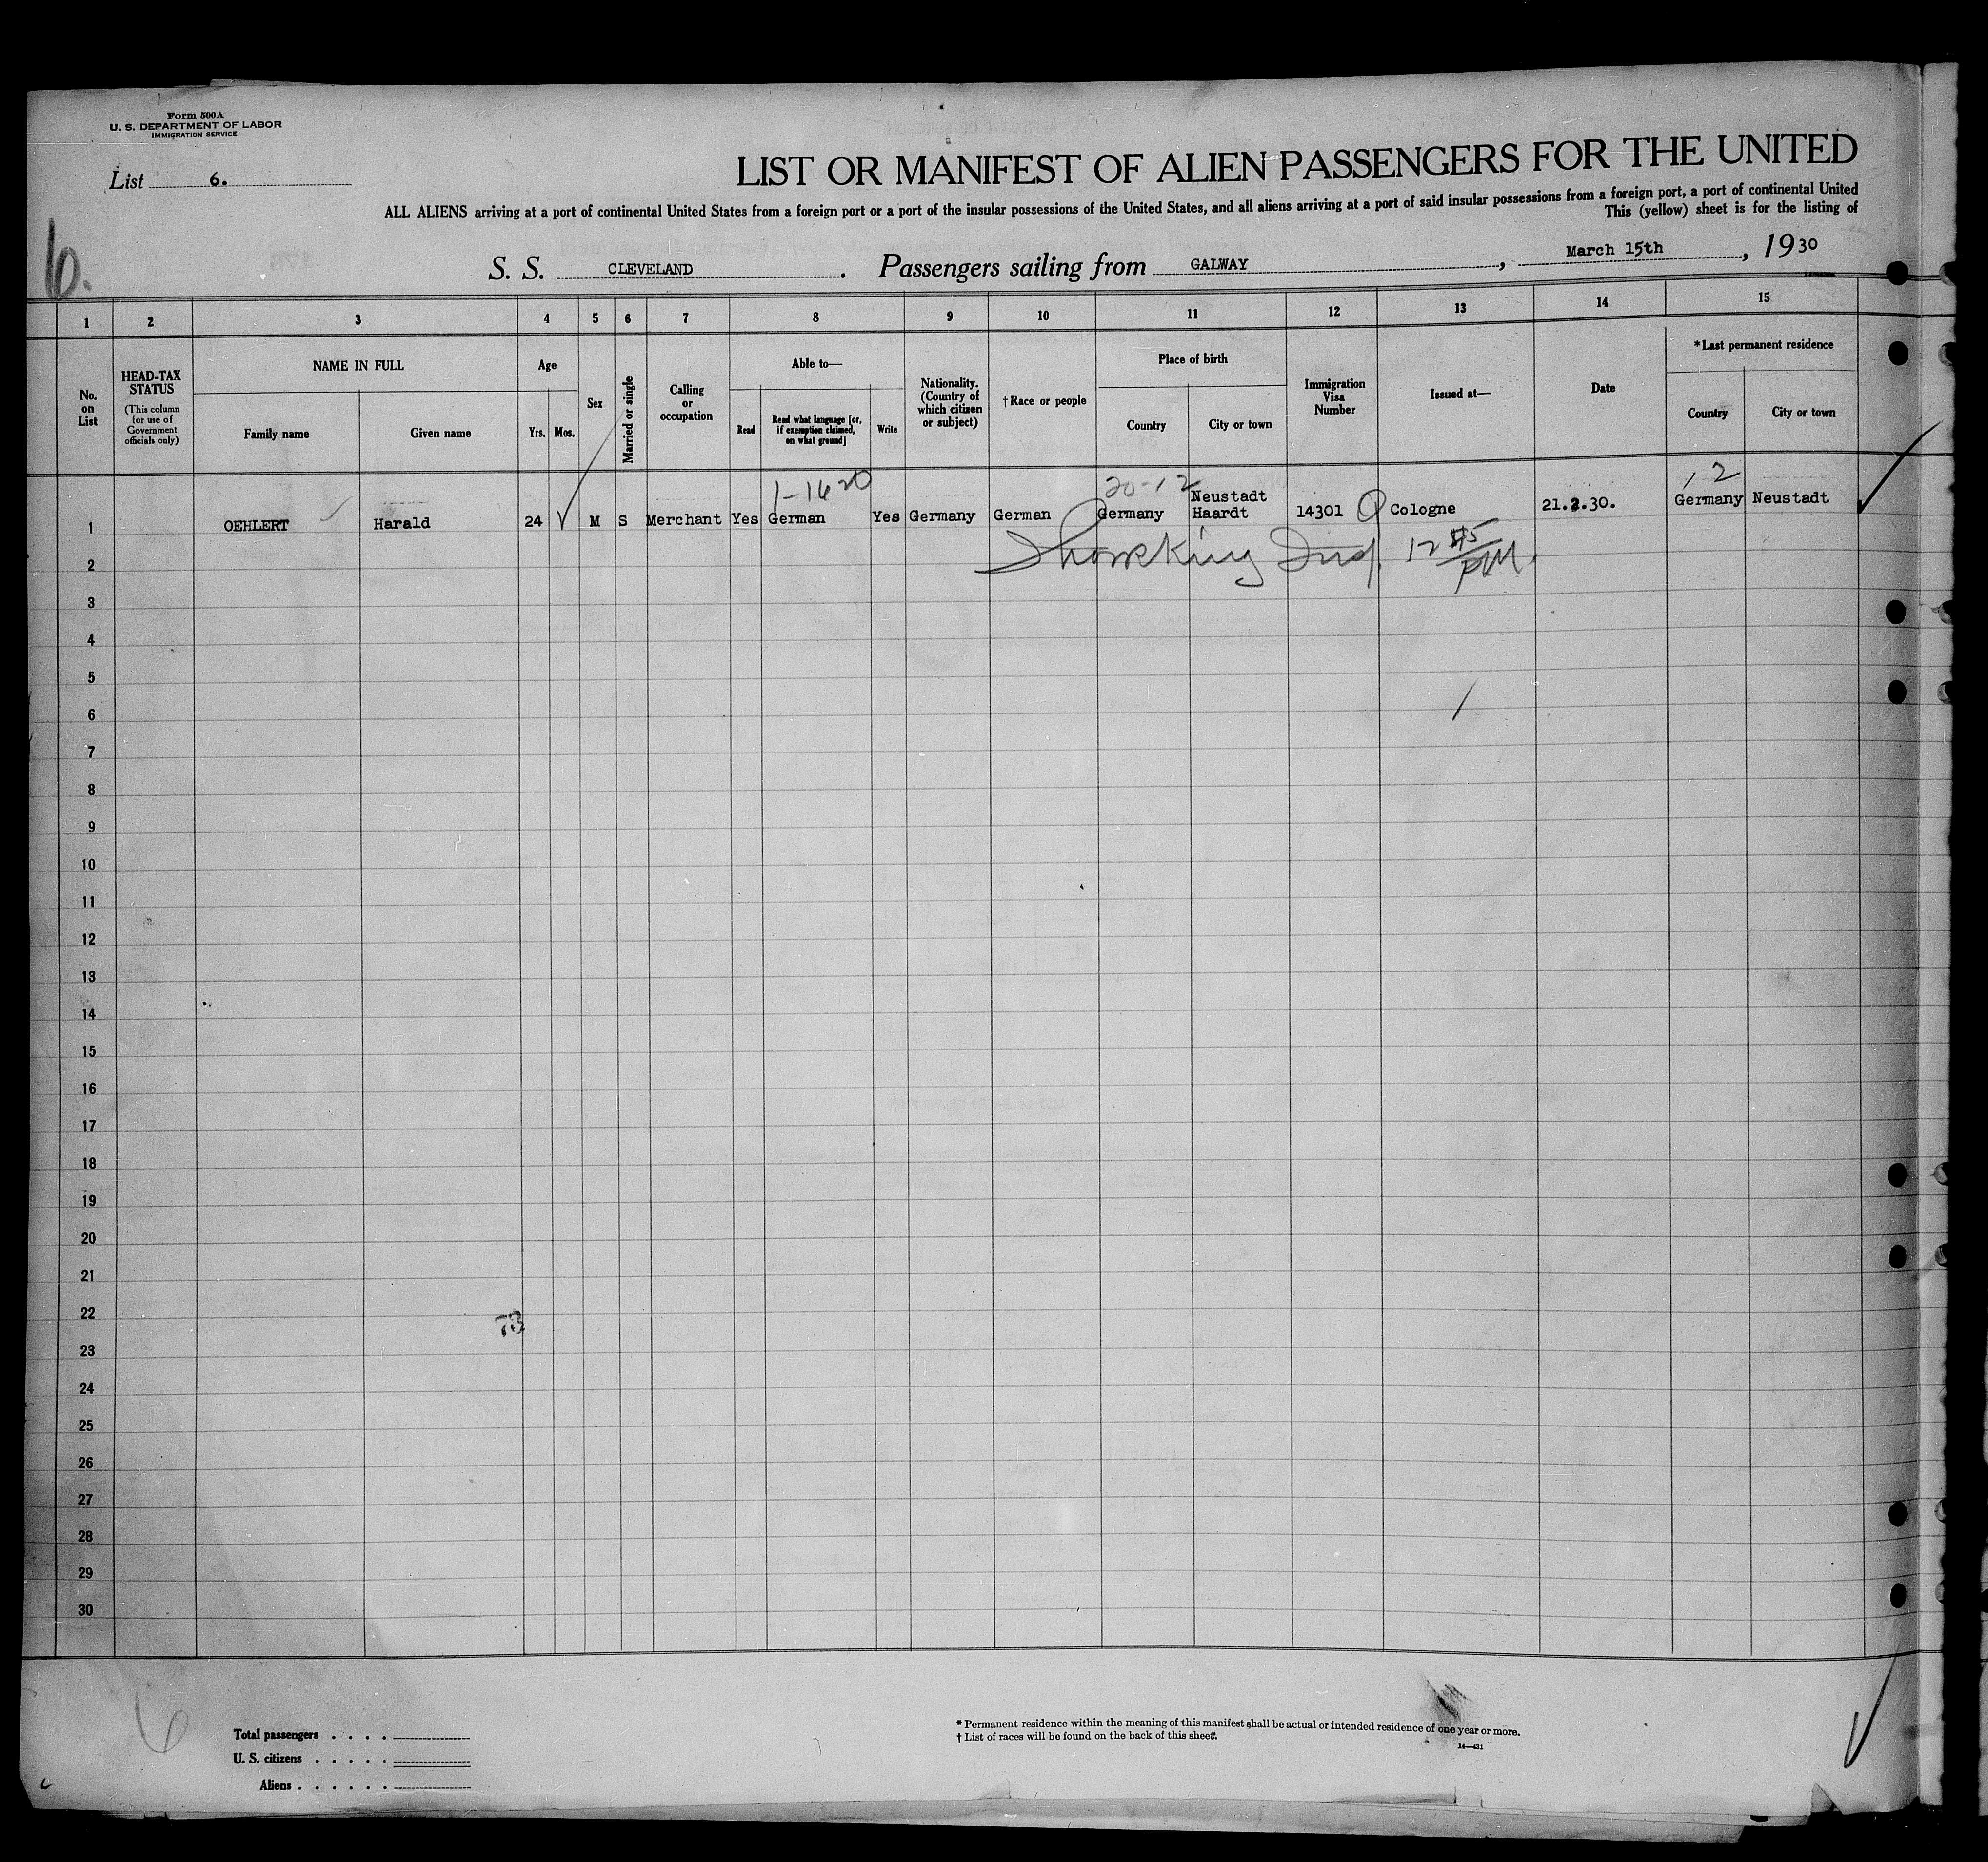 Form 500A
U. S. DEPARTMENT OF LABOR
IMMIGRATION SERVICE
List 6.
LIST OR MANIFEST OF ALIEN PASSENGERS FOR THE UNITED
ALL ALIENS arriving at a port of continental United States from a foreign port or a port of the insular possessions of the United States, and all aliens arriving at a port of said insular possessions from a foreign port, a port of continental United
This (yellow) sheet is for the listing of
6.
S. S. CLEVELAND. Passengers sailing from GALWAY, March 15th, 1930
1 2 3 4 5 6 7 8 9 10 11 12 13 14 15
No. on List
HEAD-TAX STATUS
(This column for use of Government officials only)
NAME IN FULL
Family name
Given name
Age
Yrs. Mos.
Sex
Married or single
Calling or occupation
Able to—
Read
Read what language [or, if exemption claimed, on what ground]
Write
Nationality. (Country of which citizen or subject)
†Race or people
Place of birth
Country
City or town
Immigration Visa Number
Issued at—
Date
*Last permanent residence
Country
City or town
1-1620 20-12 12
1 OEHLERT Harald 24 M S Merchant Yes German Yes Germany German Germany Neustadt Haardt 14301 Cologne 21.2.30. Germany Neustadt
2
3
4
5
6
7
8
9
10
11
12
13
14
15
16
17
18
19
20
21
22
23
24
25
26
27
28
29
30
6
Total passengers . . . .
U. S. citizens . . . . .
Aliens . . . . . .
* Permanent residence within the meaning of this manifest shall be actual or intended residence of one year or more.
† List of races will be found on the back of this sheet.
14—431